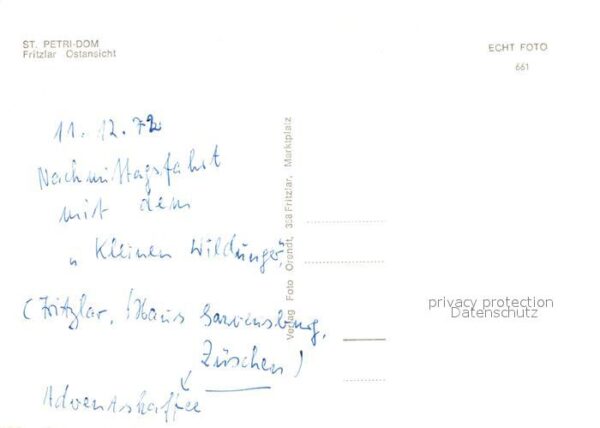 ST. PETRI-DOM
Fritzlar Ostansicht
ECHT FOTO
661
11.12.72
Nachmittagsfahrt
mit dem
„Kleinen Wildunger",
(Fritzlar, Haus
Züschen)
Adventskaffee
Verlag Foto Orendt, 358 Fritzlar, Marktplatz
privacy protection
Datenschutz